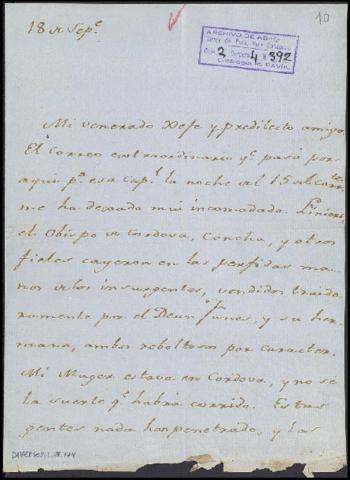 10
18 de Sep.e
ARCHIVO DE ABAS
Caja 2 Carpeta 4 x 392
Mi venerado Xefe y predilecto amigo.
El Correo extraordinario q.e pasó por
aqui p.a esa Cap.l la noche del 15 del corr.te
me ha dexado muy incomodado. Liniers,
el Obispo de Cordova, Concha, y otros
fieles cayeron en las perfidas ma-
nos de los insurgentes, vendidos traido-
ramente por el Dean Funes, y su her-
mano, ambos reboltosos por caracter.
Mi Muger estava en Cordova, y no se
la suerte q.e habrá corrido. Estas
gentes nada han penetrado, y las